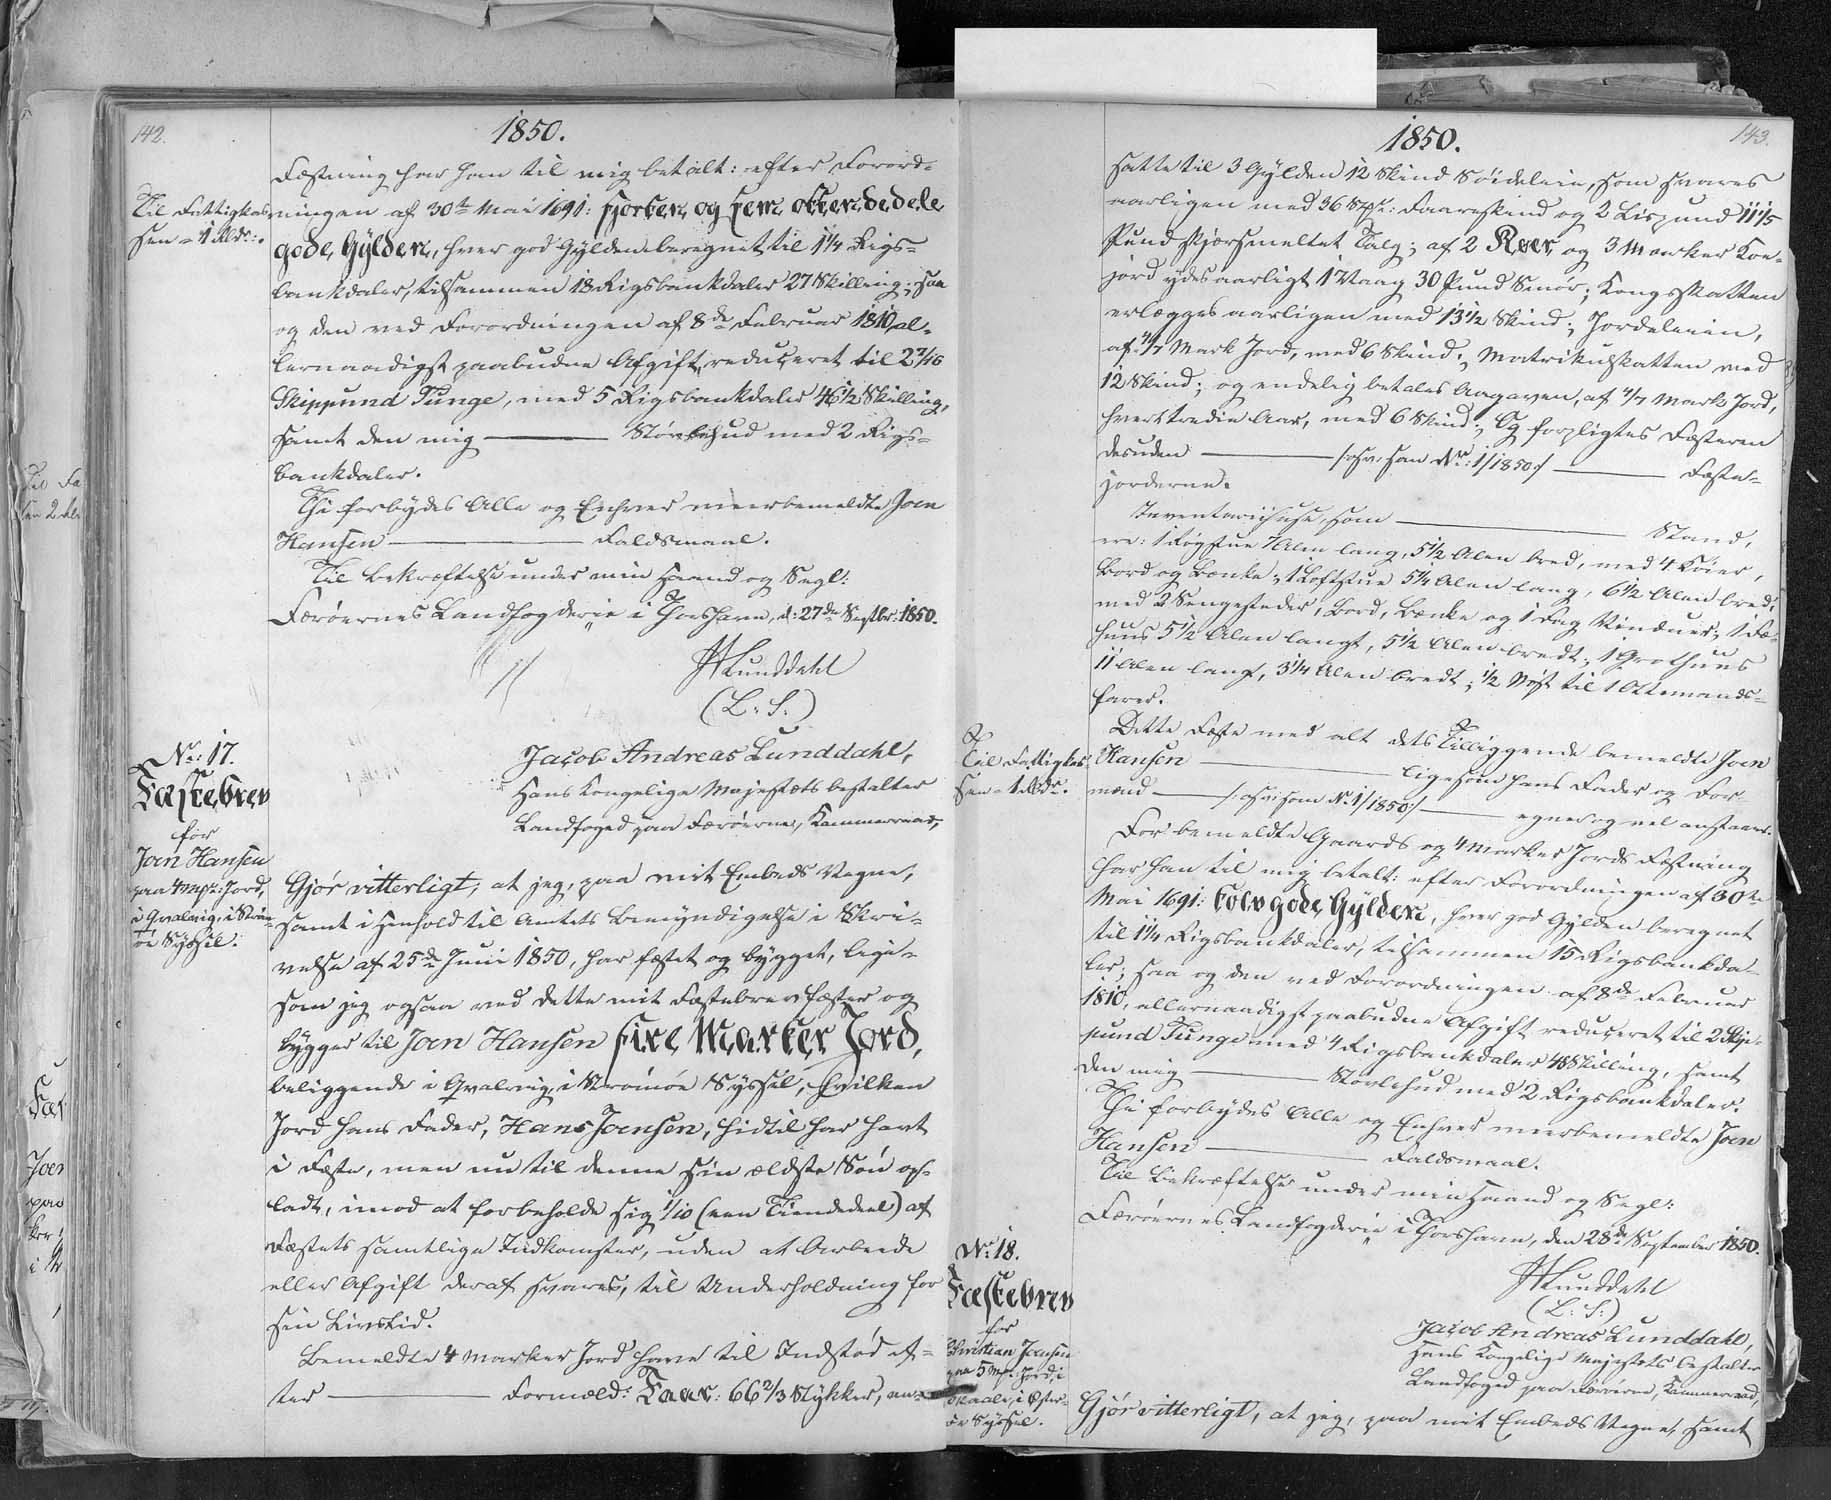 142.
1850.
Fæstning har han til mig betalt: efter Forord-
Til Fattigkas-
sen - 1 Rbdr.
ningen af 30te Mai 1691: fjorten og fem ottendedele
gode Gylden, hver god Gylden beregnet til 1 1/4 Rigs-
bankdaler, tilsammen 18 Rigsbankdaler 27 Skilling; saa
og den ved Forordningen af 8de Februar 1810, al-
lernaadigst paabudne Afgift, reduceret til 2 7/16
Skippund Tunge, med 5 Rigsbankdaler 46 1/2 Skilling,
samt den mig ——— Støvlehud med 2 Rigs-
bankdaler.
Thi forbydes Alle og Enhver meerbemeldte Joen
Hansen ——— Faldsmaal.
Til Bekræftelse under min Haand og Segl:
Færöernes Landfogderie i Thorshavn, d: 27de Septbr: 1850.
Lunddahl
(L. S.)
No. 17.
Fæstebrev
for
Joen Hansen
paa 4 Mrk: Jord,
i Qvalvig, i Strøm-
øe Syssel.
Jacob Andreas Lunddahl,
Hans Kongelige Majestæts bestalter
Landfoged paa Færöerne, Kammerraad,
Gjör vitterligt, at jeg, paa mit Embeds Vegne,
samt i Henhold til Amtets Bemyndigelse i Skri-
velse af 25de Juni 1850, har fæstet og bygget, lige-
som jeg ogsaa ved dette mit Fæstebrev fæster og
bygger til Joen Hansen fire Marker Jord,
beliggende i Qvalvig, i Strömöe Syssel, hvilken
Jord hans Fader, Hans Joensen, hidtil har havt
i Fæste, men nu til denne sin ældste Sön op-
ladt, imod at forbeholde sig 1/10 (een Tiendedeel) af
Fæstets samtlige Indkomster, uden at Arbeide
eller Afgift deraf svares, til Underholdning for
sin Livstid.
Bemeldte 4 Marker Jord have til Indstöd ef-
ter ——— Formæld: Faar: 66 2/3 Stykker,
143.
1850.
satte til 3 Gylden 12 Skind Söideleie, som svares
aarligen med 36 Stkr: Faareskind og 2 Lispund 11 1/5
Pund skjörsmeltet Talg; af 2 Köer og 3 Marker Koe-
jord ydes aarligt 1 Vaag 30 Pund Smör; Kongsskatten
erlægges aarligen med 13 1/2 Skind; Jordeleien,
af 4/7 Mark Jord, med 6 Skind; Matrikulskatten med
12 Skind; og endelig betales Aagaven, af 4/7 Mark Jord,
hvert tredie Aar, med 6 Skind; Og forpligtes Fæsteren
desuden ——— /: osv: som Nr: 1/1850 :/ ——— Fæste-
jorderne.
Inventariihuse, som ——— Stand,
ere: 1 Rögstue 7 Alen lang, 5 1/2 Alen bred, med 4 Köier,
Bord og Bænke; 1 Loftstue 5 1/4 Alen lang, 6 1/2 Alen bred,
med 2 Sengesteder, Bord, Bænke og 1 Fag Vinduer; 1 Fæ-
huus 5 1/2 Alen langt, 5 1/2 Alen bredt; 1 Grothuus
11 Alen langt, 3 1/4 Alen bredt; 1/2 Nöst til 1 Ottemands-
farer.
Dette Fæste med alt dets Tilliggende bemeldte Joen
Til Fattigkas-
sen - 1 Rbdr.
Hansen ——— ligesom hans Fader og For-
mænd ——— /: osv: som Nr. 1/1850 :/ ——— egner og vel anstaaer.
For bemeldte Gaards og 4 Marker Jords Fæstning
har han til mig betalt: efter Forordningen af 30te
Mai 1691: tolv gode Gylden, hver god Gylden beregnet
til 1 1/4 Rigsbankdaler, tilsammen 15 Rigsbankda-
ler; saa og den ved Forordningen af 8de Februar
1810, allernaadigst paabudne Afgift reduceret til 2 Skip-
pund Tunge med 4 Rigsbankdaler 48 Skilling, samt
den mig ——— Støvlehud med 2 Rigsbankdaler.
Thi forbydes Alle og Enhver meerbemeldte Joen
Hansen ——— Faldsmaal.
Til Bekræftelse under min Haand og Segl:
Færöernes Landfogderie i Thorshavn, den 28de September 1850.
Lunddahl
(L. S.)
No. 18.
Fæstebrev
for
Christian Joensen
paa 5 Mrk: Jord, i
Skaale, i Öster-
öe Syssel.
Jacob Andreas Lunddahl,
Hans Kongelige Majestæts bestalter
Landfoged paa Færöerne, Kammerraad,
Gjör vitterligt, at jeg, paa mit Embeds Vegne, samt